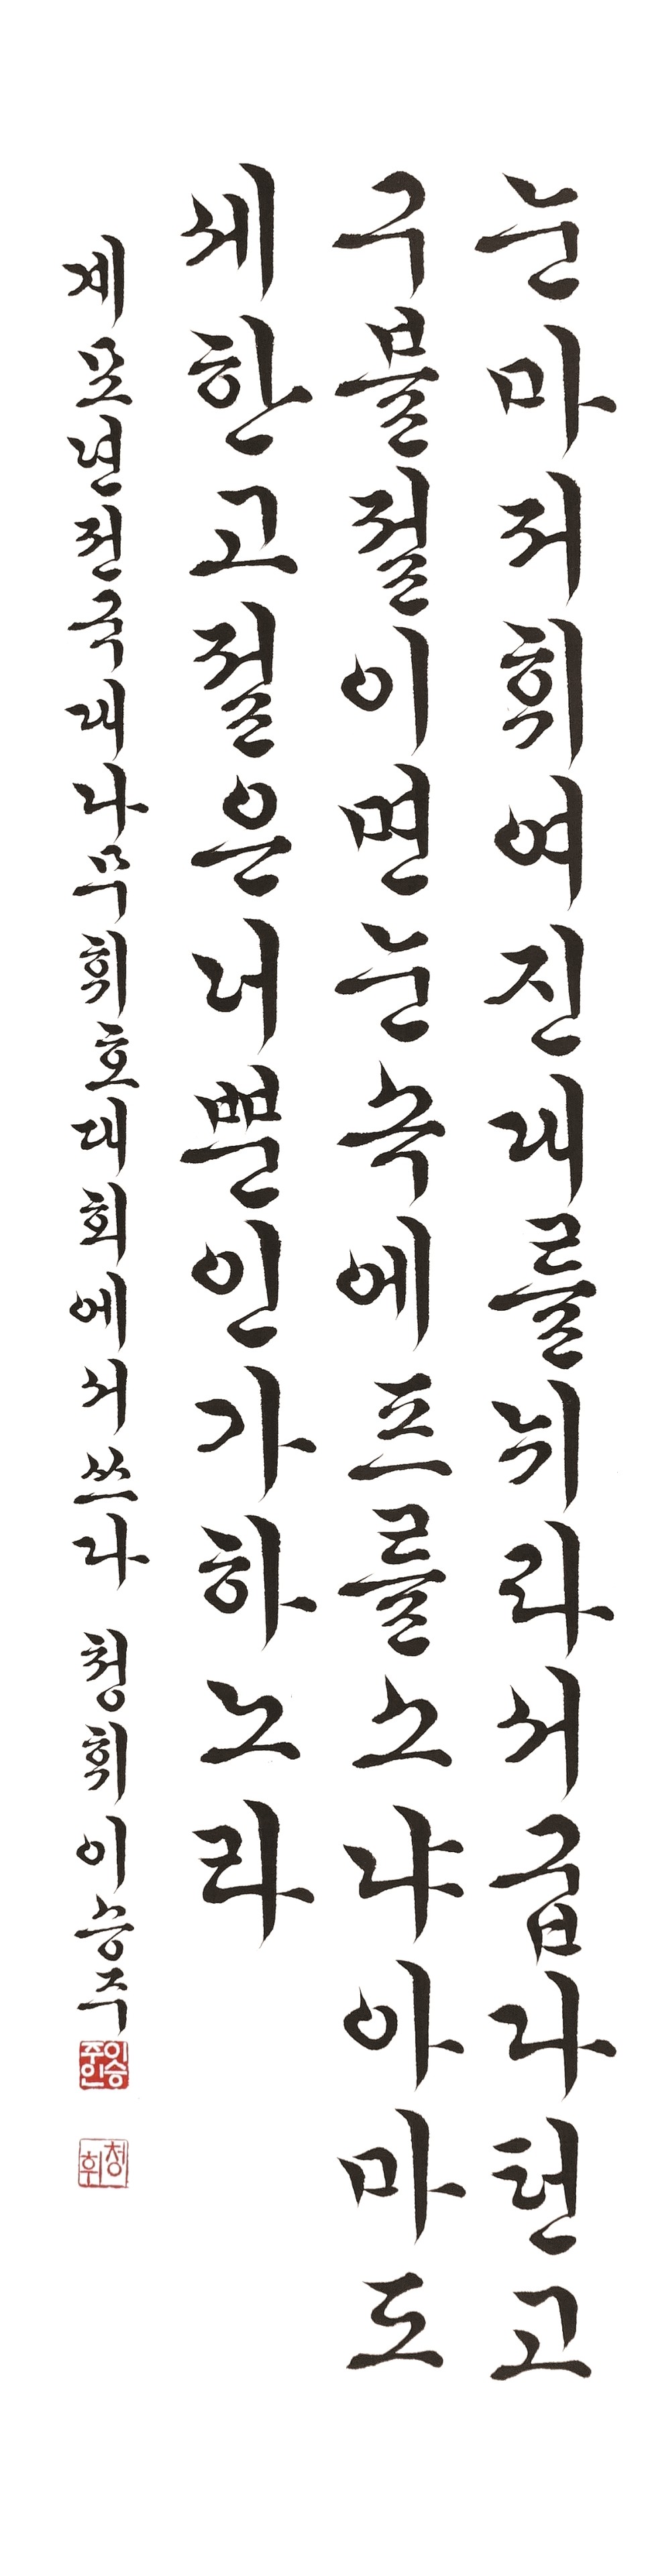 눈마저휘여진대를뉘라서굽다턴고
구블절이면눈속에프를소냐아마도
세한고절은너뿐인가하노라
계묘년전국대나무휘호대회에서쓰다 청휘이승주
이승주인
청휘